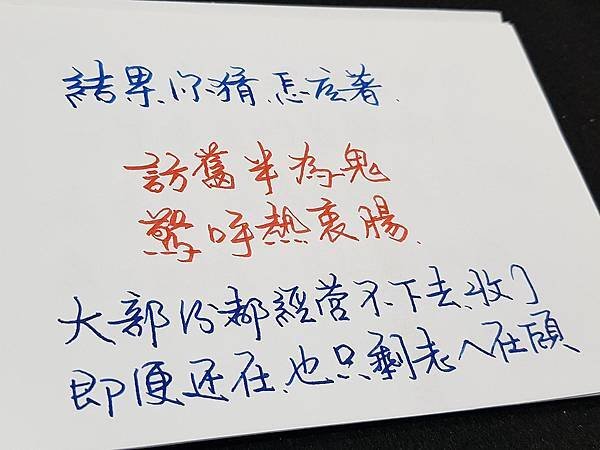 結果、你猜、怎应著、
訪舊半為鬼
驚呼熱衷腸、
大部份都經营不下去、收了
即便还在、也只剩老人在頋